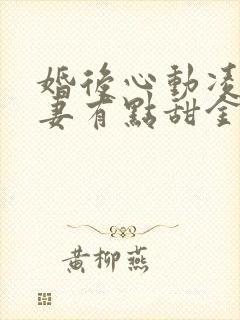 婚後心動凌
妻有點甜全
黃柳燕